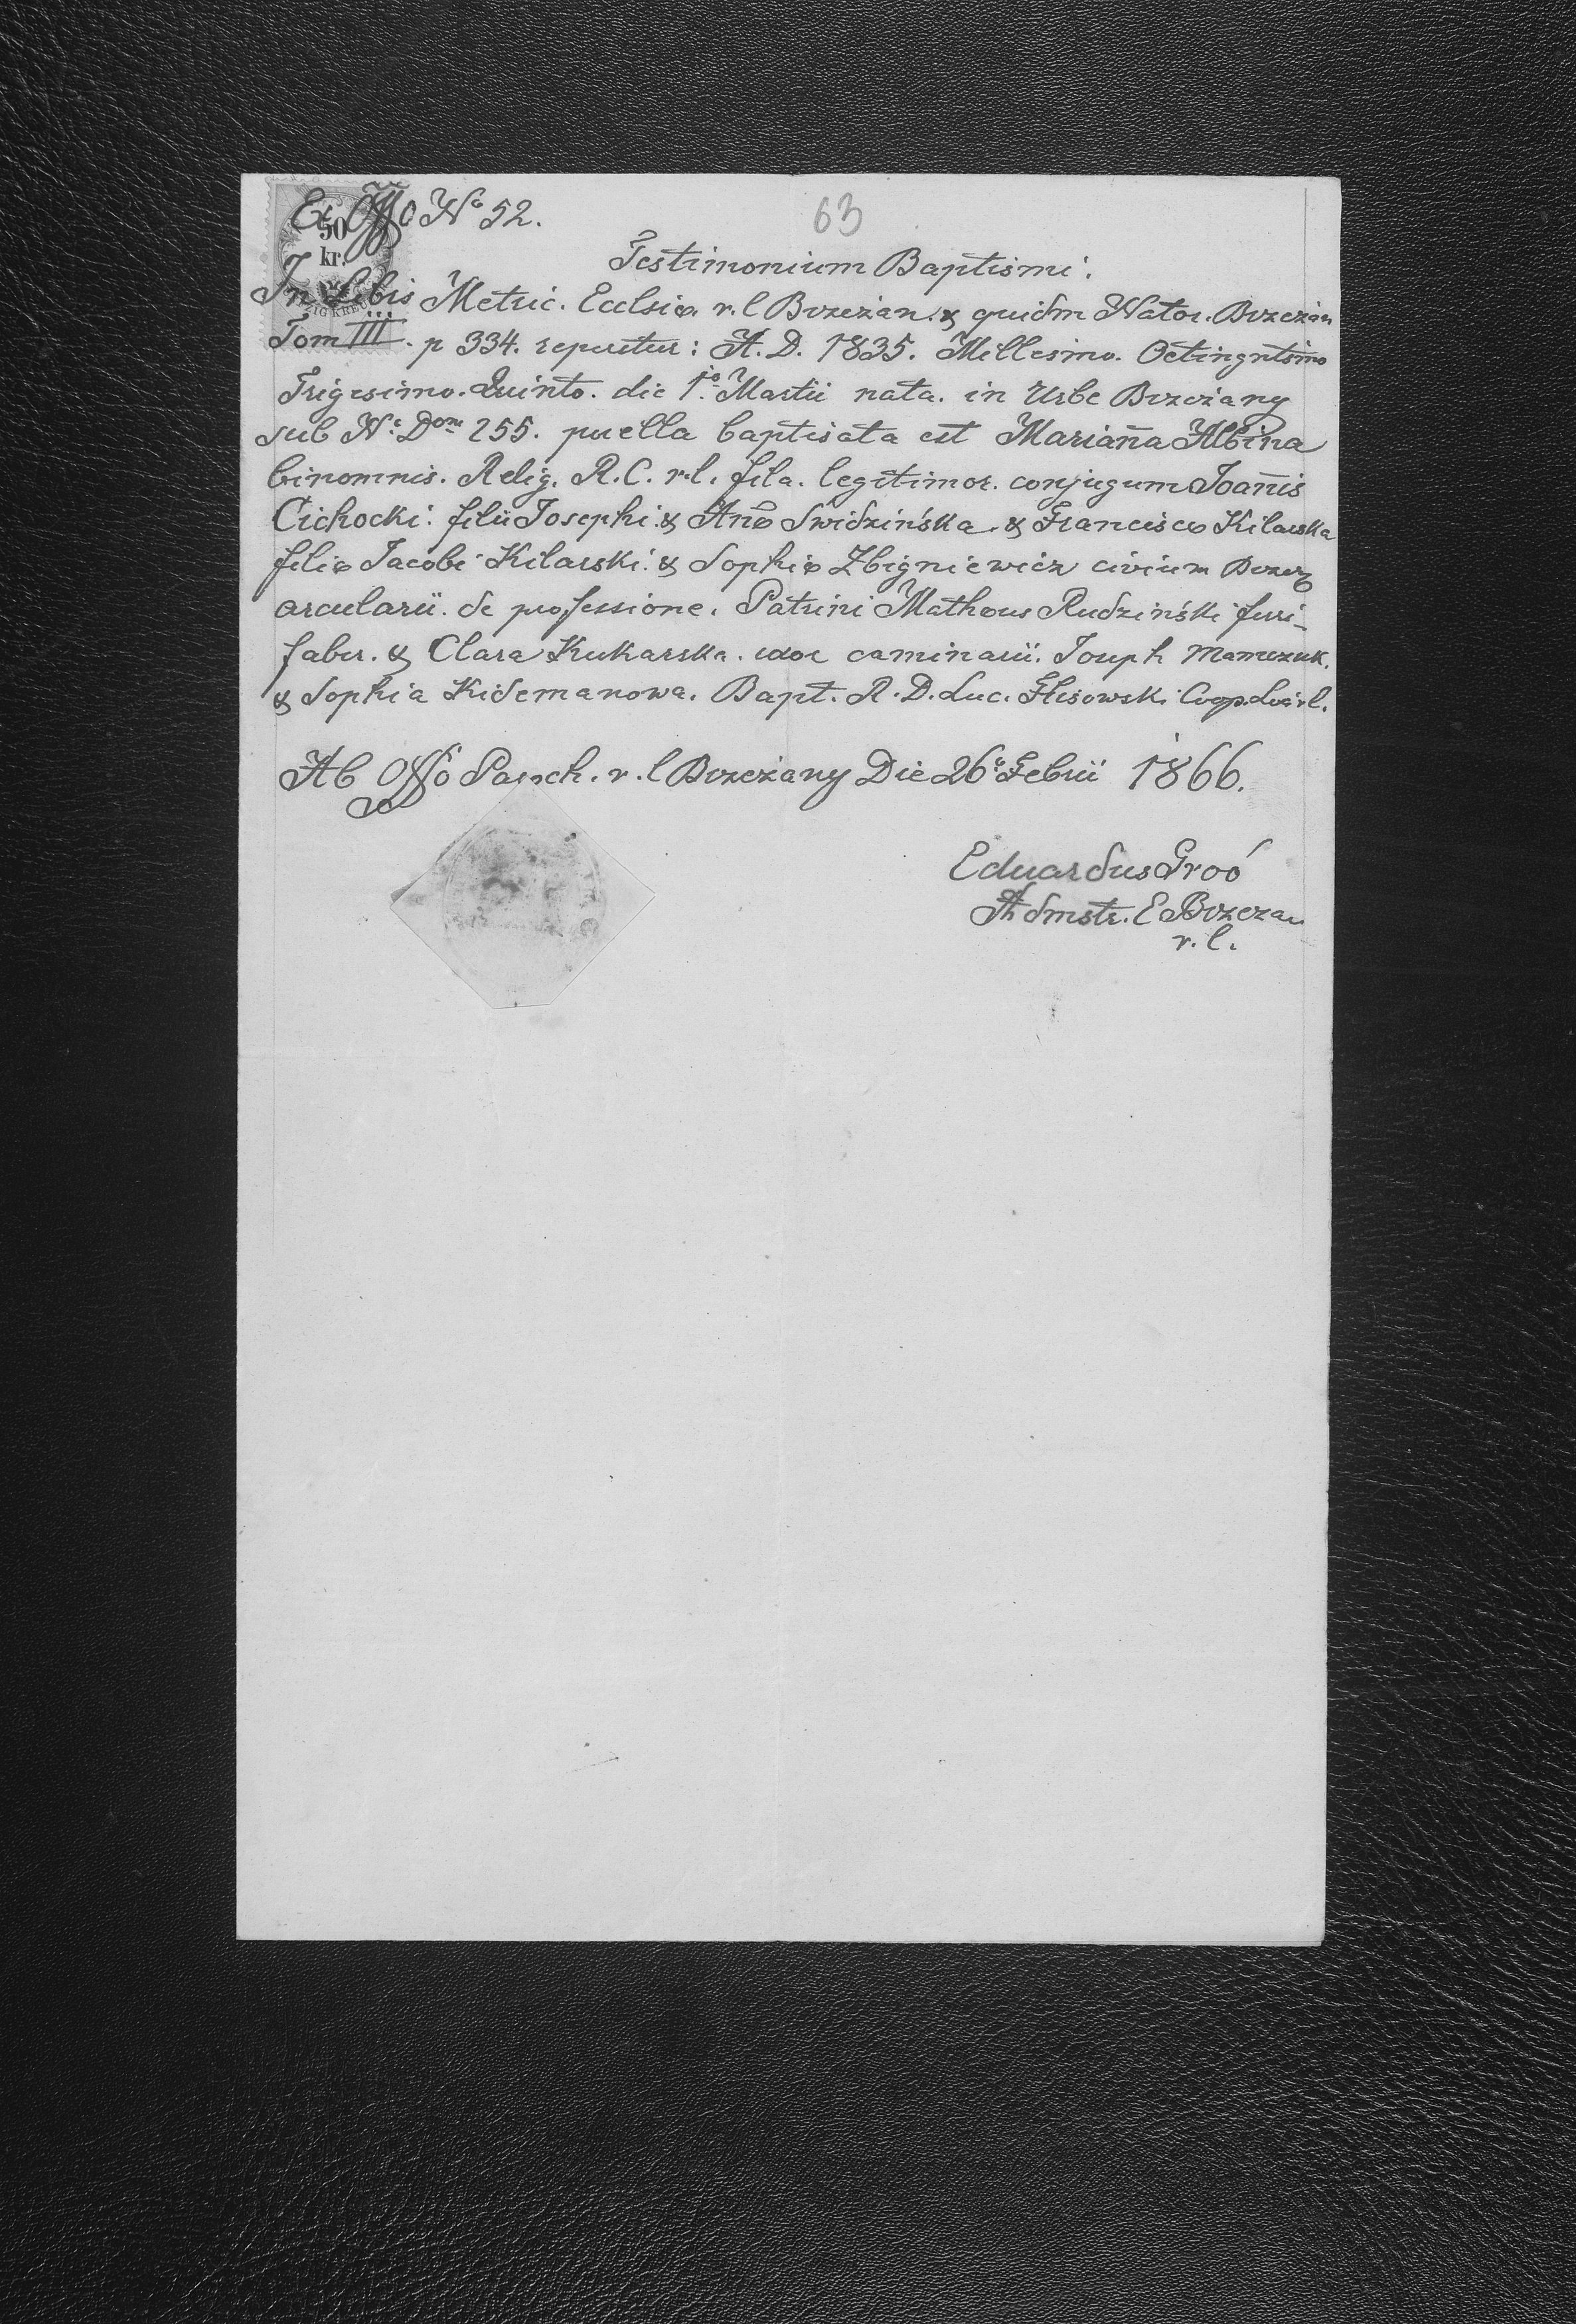 Ex Offo Nº 52.
63
50
kr.
Testimonium Baptismi.
In Libris Metric. Ecclsiæ. r. l Brzeżan. & quidm Nator. Brzeżan
Tom III. p 334. reperitur: A. D. 1835. Millesimo. Octingntsimo
Trigesimo. Quinto. die 1º Martii nata. in Urbe Brzeżany
sub Nº Dom 255. puella baptisata est Mariaña Albina
binomnis. Relig. R. C. r. l. fila. legitimor. conjugum Joañis
Cichocki. filii Josephi & Añæ Świdzińska & Franciscæ Kilarska
filiæ Jacobi Kilarski. & Sophiæ Zbigniewicz civium Brzez
arcularii. de professione. Patrini Mathæus Rudziński furi-
faber. & Clara Kukarska. uxor caminarii. Joseph Mamczuk.
& Sophia Kidemanowa. Bapt. R. D. Luc. Coop. r. l.
Ab Offo Paroch. r. l Brzeżany Die 26º Febrii 1866.
Eduardus Groó
Admstr. E Brzeżan
r. l.